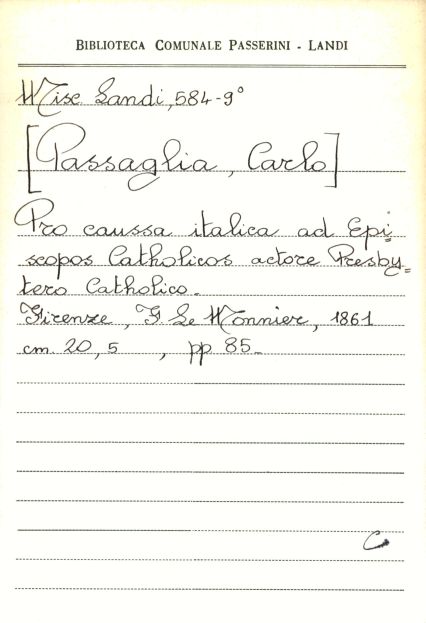 BIBLIOTECA COMUNALE PASSERINI - LANDI
Misc. Landi, 584-9°
[Passaglia, Carlo]
Pro caussa italica ad Epi=
scopos Catholicos actore Presby=
tero Catholico.
Firenze, F. Le Monnier, 1861
cm. 20,5 , pp 85.
C